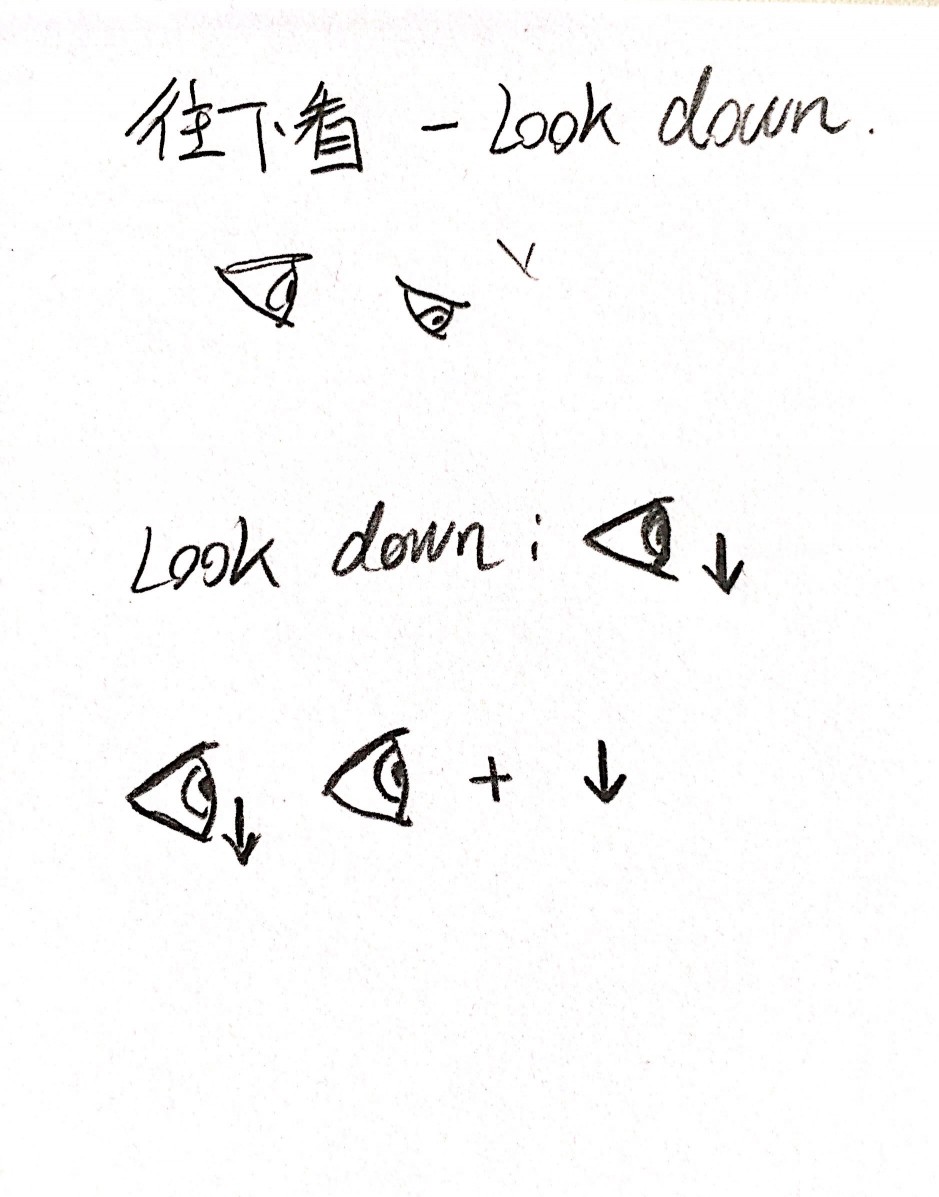 往下看 - Look down.
Look down: ↓
↓ + ↓